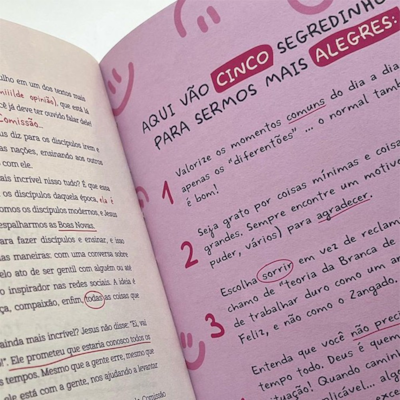 ulho em um dos textos mais
opinião), que está já
cê já deve ter ouvido falar dele!
Comissão...
us diz para os discípulos irem e
as nações, ensinando aos outros
com ele.
ais incrível nisso tudo? É que essa
os discípulos daquela época, ela é
omos os discípulos modernos, e Jesus
espalharmos as Boas Novas.
ara fazer discípulos e ensinar, e isso
as maneiras: com uma conversa sobre
elo ato de ser gentil com alguém ou até
o inspirador nas redes sociais. A ideia é
ça, compaixão, enfim, todas as coisas que
ainda mais incrível? Jesus não disse: "Ei, vai
!". Ele prometeu que estaria conosco todos os
s tempos. Mesmo que a gente erre, mesmo que
ele está com a gente, nos ajudando a levantar
AQUI VÃO CINCO SEGREDINHO
PARA SERMOS MAIS ALEGRES:
1 Valorize os momentos comuns do dia a dia
apenas os "diferentões" ... o normal també
é bom!
2 Seja grato por coisas mínimas e coisa
grandes. Sempre encontre um motivo
puder, vários) para agradecer.
3 Escolha sorrir em vez de reclama
chamo de "teoria da Branca de
de trabalhar duro como um an
Feliz, e não como o Zangado.
Entenda que você não preci
tempo todo. Deus é quem
situação! Quando caminh
plicável... aleg